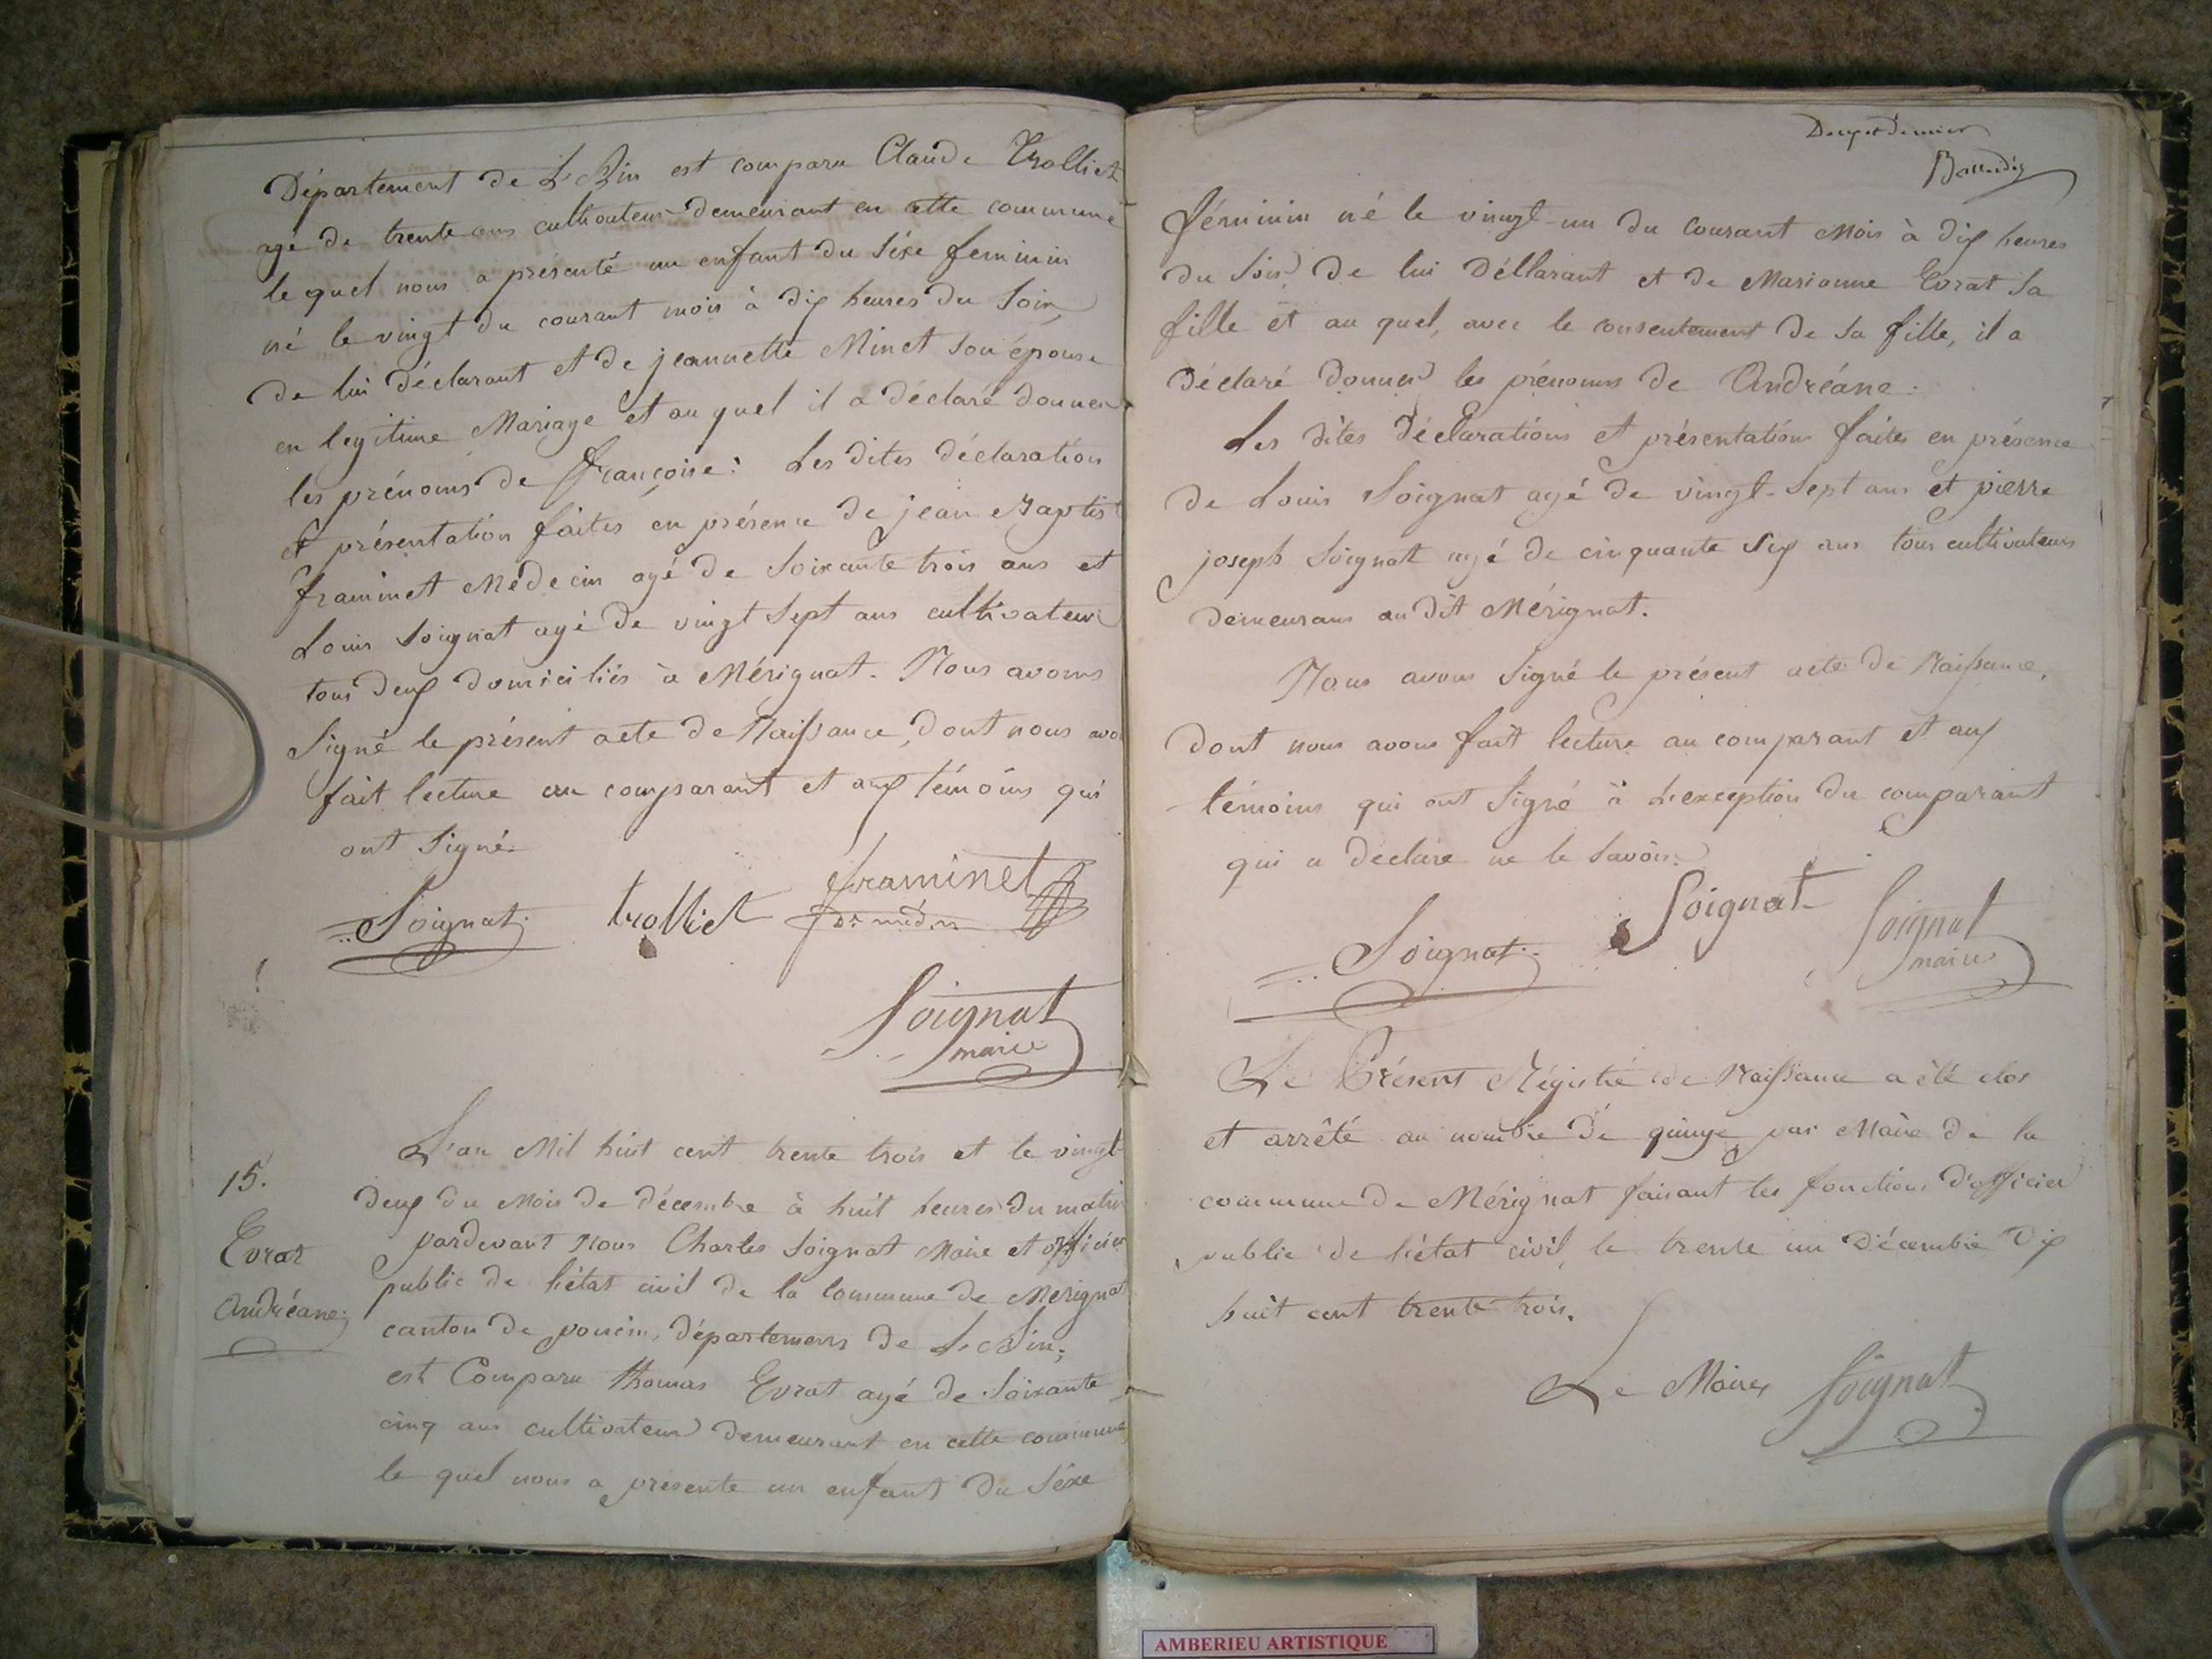 Département de L'Ain est comparu Claude Trolliet
agé de trente ans cultivateur demeurant en cette commune
le quel nous a présenté un enfant du Séxe feminin
né le vingt du courant mois à dix heures du Soir,
de lui déclarant et de jeannette Minet son épouse
en legitime Mariage et au quel il a déclaré donner
les prénoms de françoise: Les dites déclaration
et présentation faites en présence de jean Baptist
framinet Médecin agé de Soixante trois ans et
Louis Soignat agé de vingt Sept ans cultivateur
tous deux domiciliés à Mérignat. Nous avons
Signé le présent acte de Naissance, dont nous avo
fait lecture au comparant et aux témoins qui
ont Signé.
Soignat trolliet framinet
Dr. méd.n
Soignat
maire
15.
Evrat
Andréane
L'an Mil huit cent trente trois et le vingt-
deux du Mois de décembre à huit heures du matin
pardevant Nous Charles Soignat Maire et officier
public de l'état civil de la Commune de Mérignat
canton de poncin, département de L'Ain;
est Comparu thomas Evrat agé de Soixante
cinq ans cultivateur demeurant en cette commune
le quel nous a présenté un enfant du Séxe
féminin né le vingt-un du courant Mois à dix heures
du Soir, de lui Déllarant et de Marianne Evrat Sa
fille et au quel, avec le consentement de Sa fille, il a
déclaré donner les prénoms de Andréane.
Les dites déclarations et présentations faites en présence
de Louis Soignat agé de vingt-Sept ans et pierre
joseph Soignat agé de cinquante Six ans tous cultivateurs
demeurans au dit Mérignat.
Nous avons Signé le présent acte de Naissance,
dont nous avons fait lecture au comparant et aux
témoins qui ont Signé à L'exception du comparant
qui a déclaré ne le Savoir.
Soignat Soignat Soignat
maire
Le Présent Régistre de Naissance a été clos
et arrêté au nombre de quinze par Maire de la
commune de Mérignat faisant les fonctions d'officier
public de l'état civil, le trente un décembre Dix
huit cent trente trois.
Le Maire Soignat
AMBERIEU ARTISTIQUE